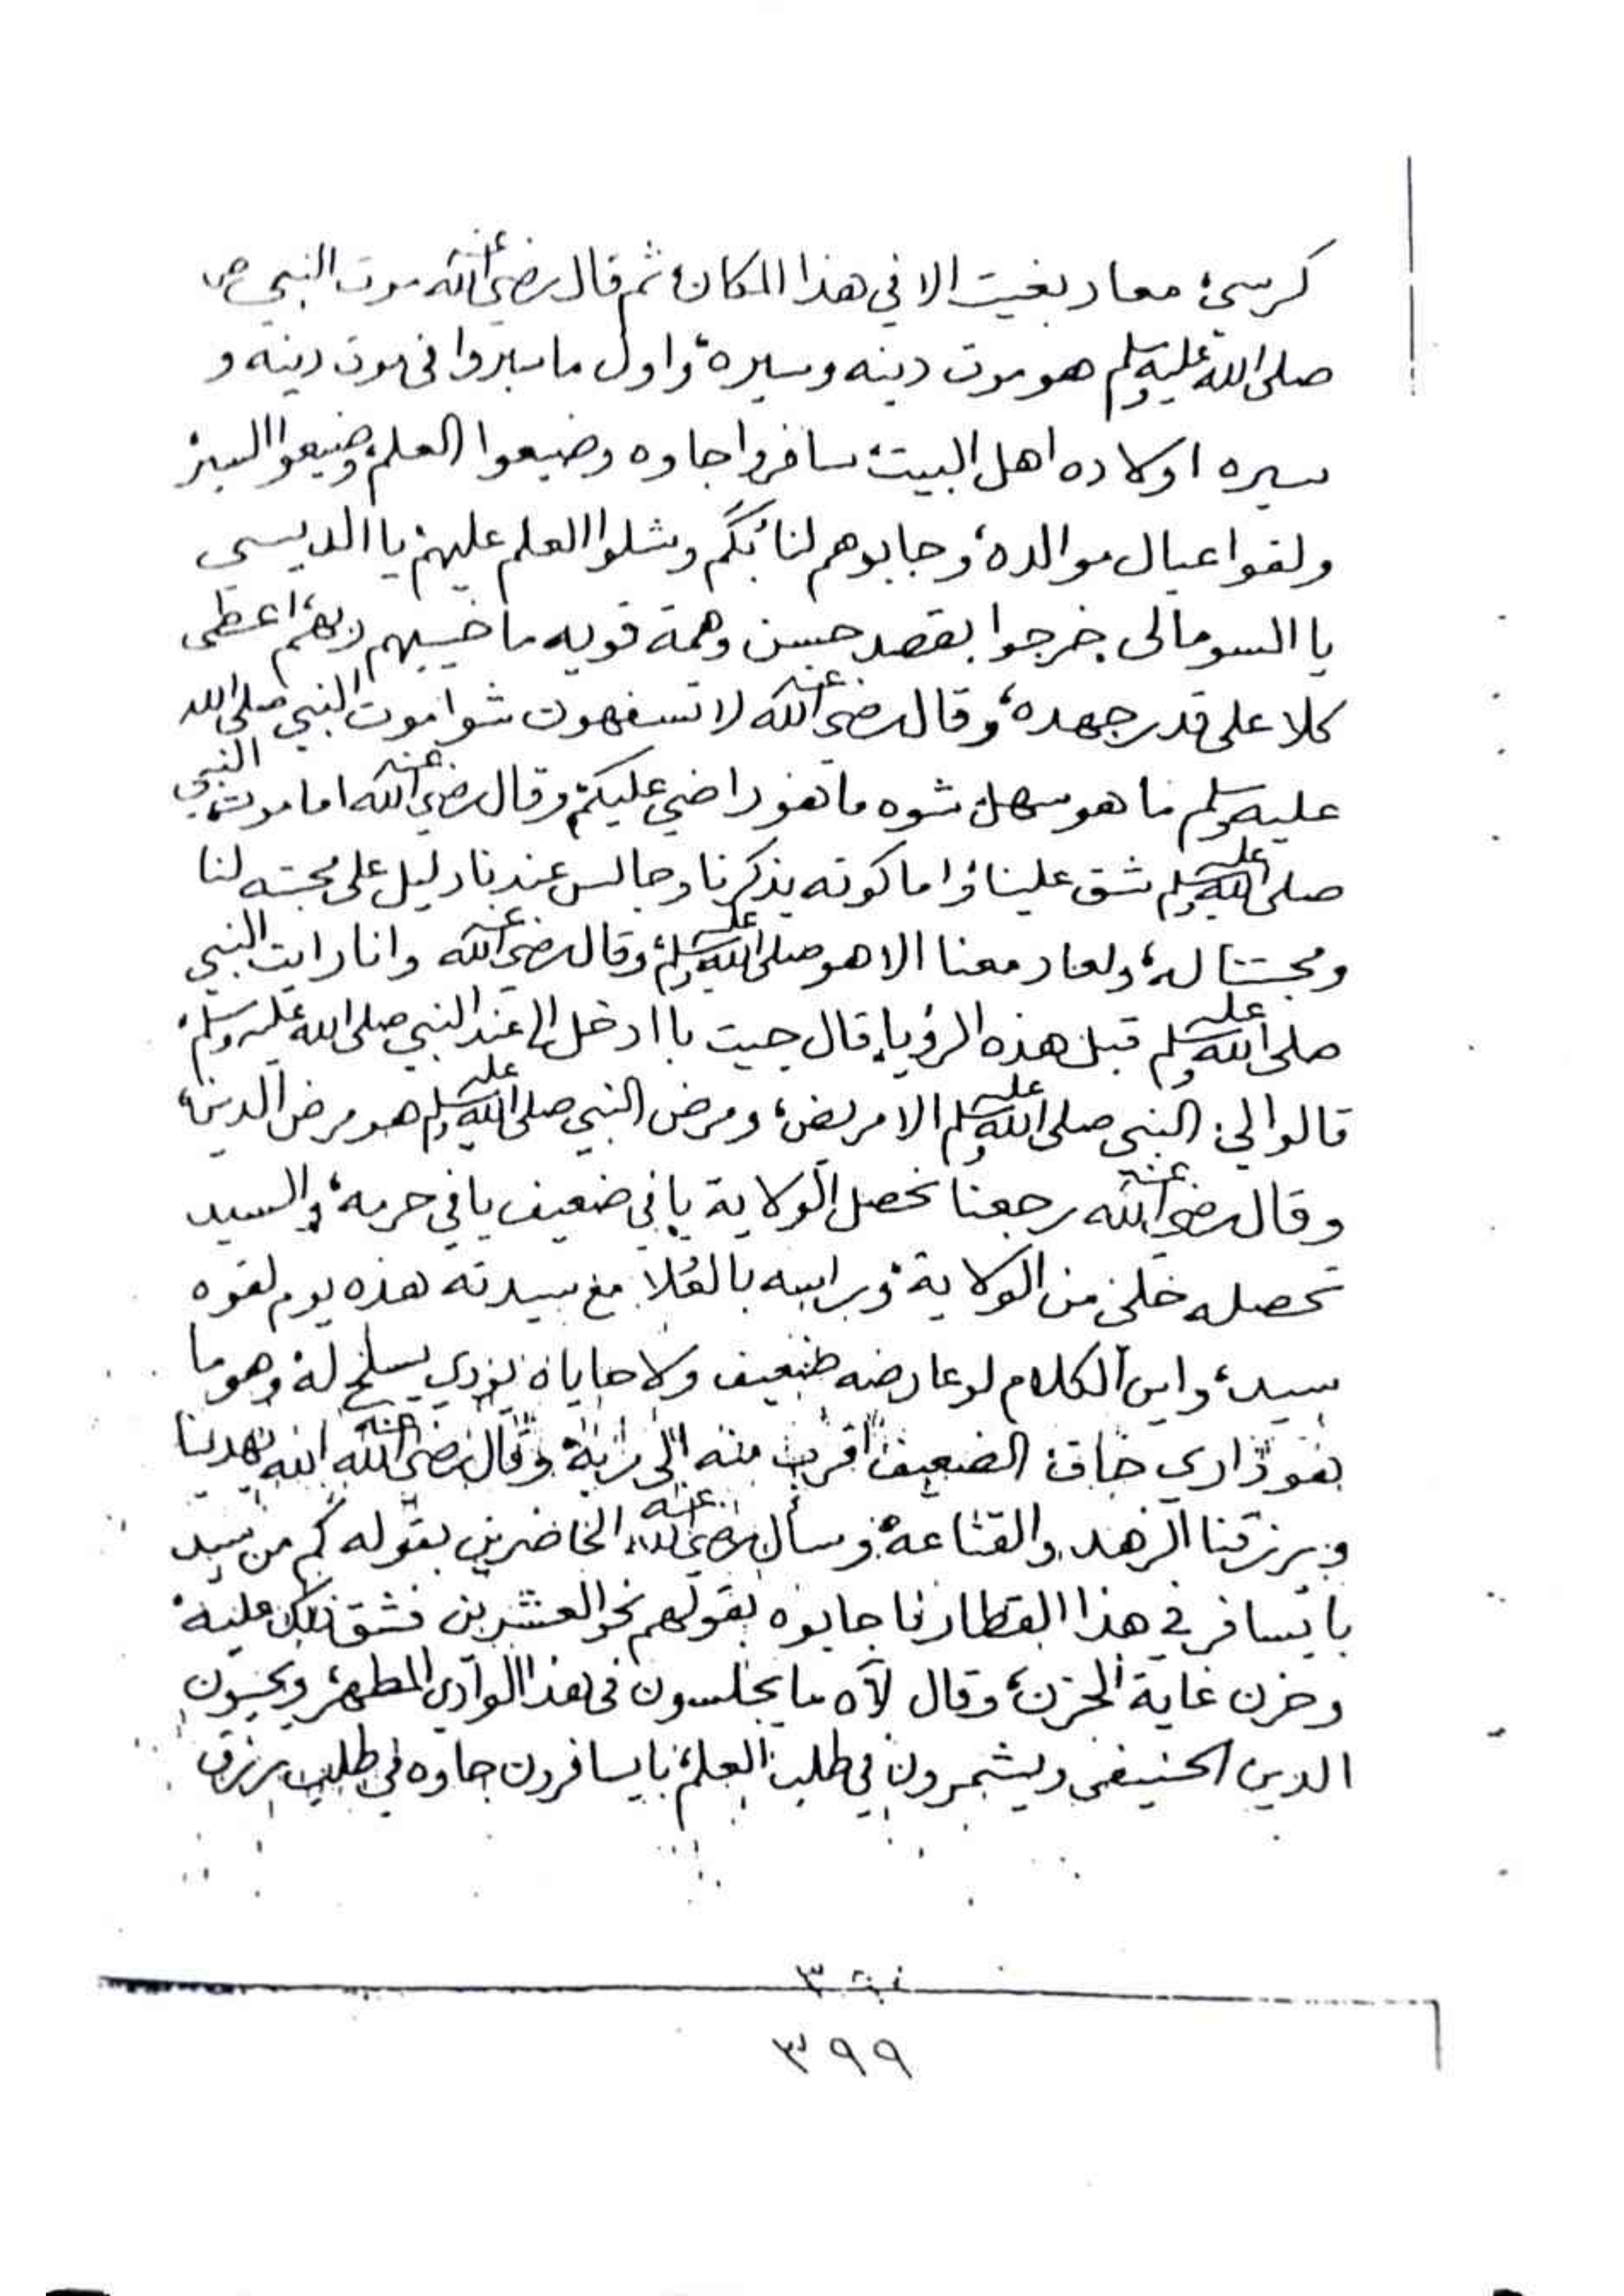 كرسي، معاد بغيت الا في هذا المكان، ثم قال رضي الله عنه موت النبي ص
صلى الله عليه وسلم هو موت دينه وسيره، واول ما سبروا في موت دينه و
سيره اولاده اهل البيت، سافروا جاوه وضيعوا العلم، وضيعوا السير
ولقوا عيال موالده، وجابوهم لنا بُكُم وشلوا العلم عليهم يا الديسي
يا السومالي خرجوا بقصد حسن وهمة قويه ما خيبهم ربهم، اعطى
كلا على قدر جهده، وقال رضي الله عنه لا تسفهون شوا موت النبي صلى الله
عليه وسلم ما هو سهل شوه ما هو راضي عليكم، وقال رضي الله عنه اما موت النبي
صلى الله عليه وسلم شق علينا، واما كونه يذكرنا وجالس عندنا دليل على محبته لنا
ومحبتنا له، ولعاد معنا الا هو صلى الله عليه وسلم، وقال رضي الله عنه وانا رايت النبي
صلى الله عليه وسلم قبل هذه الرؤيا، قال جيت با ادخل الى عند النبي صلى الله عليه وسلم
قالوا لي: النبي صلى الله عليه وسلم الا مريض، ومرض النبي صلى الله عليه وسلم هو مرض الدين،
وقال رضي الله عنه رجعنا نحصل الولاية يا في ضعيف يا في حرمه، والسيد
تحصله خلي من الولاية، وبراسه بالعُلا مع سيدته هذه يوم لقوه
سيد، واين الكلام لو عارضه ضعيف ولا حاياه يؤدي يسلخ له، وهو ما
بغوذاري خاق: الضعيف اقرب منه الى ربه، وقال رضي الله عنه الله يهدينا
ويرزقنا الزهد والقناعة، وسأل رضي الله عنه الحاضرين بقوله كم من سيد
با يسافر في هذا القطار فاجابوه بقولهم نحو العشرين فشق ذلك عليه
وحزن غاية الحزن، وقال لآه ما يجلسون في هذا الوادي المطهر، ويحيون
الدين الحنيفي ويشمرون في طلب العلم، با يسافرون جاوه في طلب رزق
٣٩٩